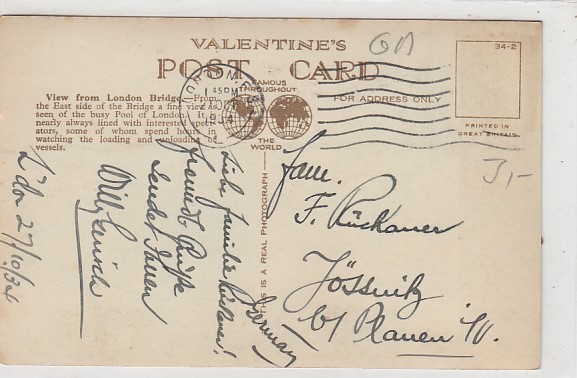 VALENTINE'S
POST CARD
FAMOUS
THROUGHOUT
THE
WORLD
FOR ADDRESS ONLY
34-2
PRINTED IN
GREAT BRITAIN
View from London Bridge. From
the East side of the Bridge a fine view is
seen of the busy Pool of London. It is
nearly always lined with interested spect-
ators, some of whom spend hours in
watching the loading and unloading of
vessels.
THIS IS A REAL PHOTOGRAPH
LONDON
1 45 PM
27 OCT
1934
L'don 27/10/34
Liebe Familie Rückauer!
Grüße
sendet Ihnen
Fam.
F. Rückauer
Jössnitz
b/ Plauen i/V.
Germany
3,-